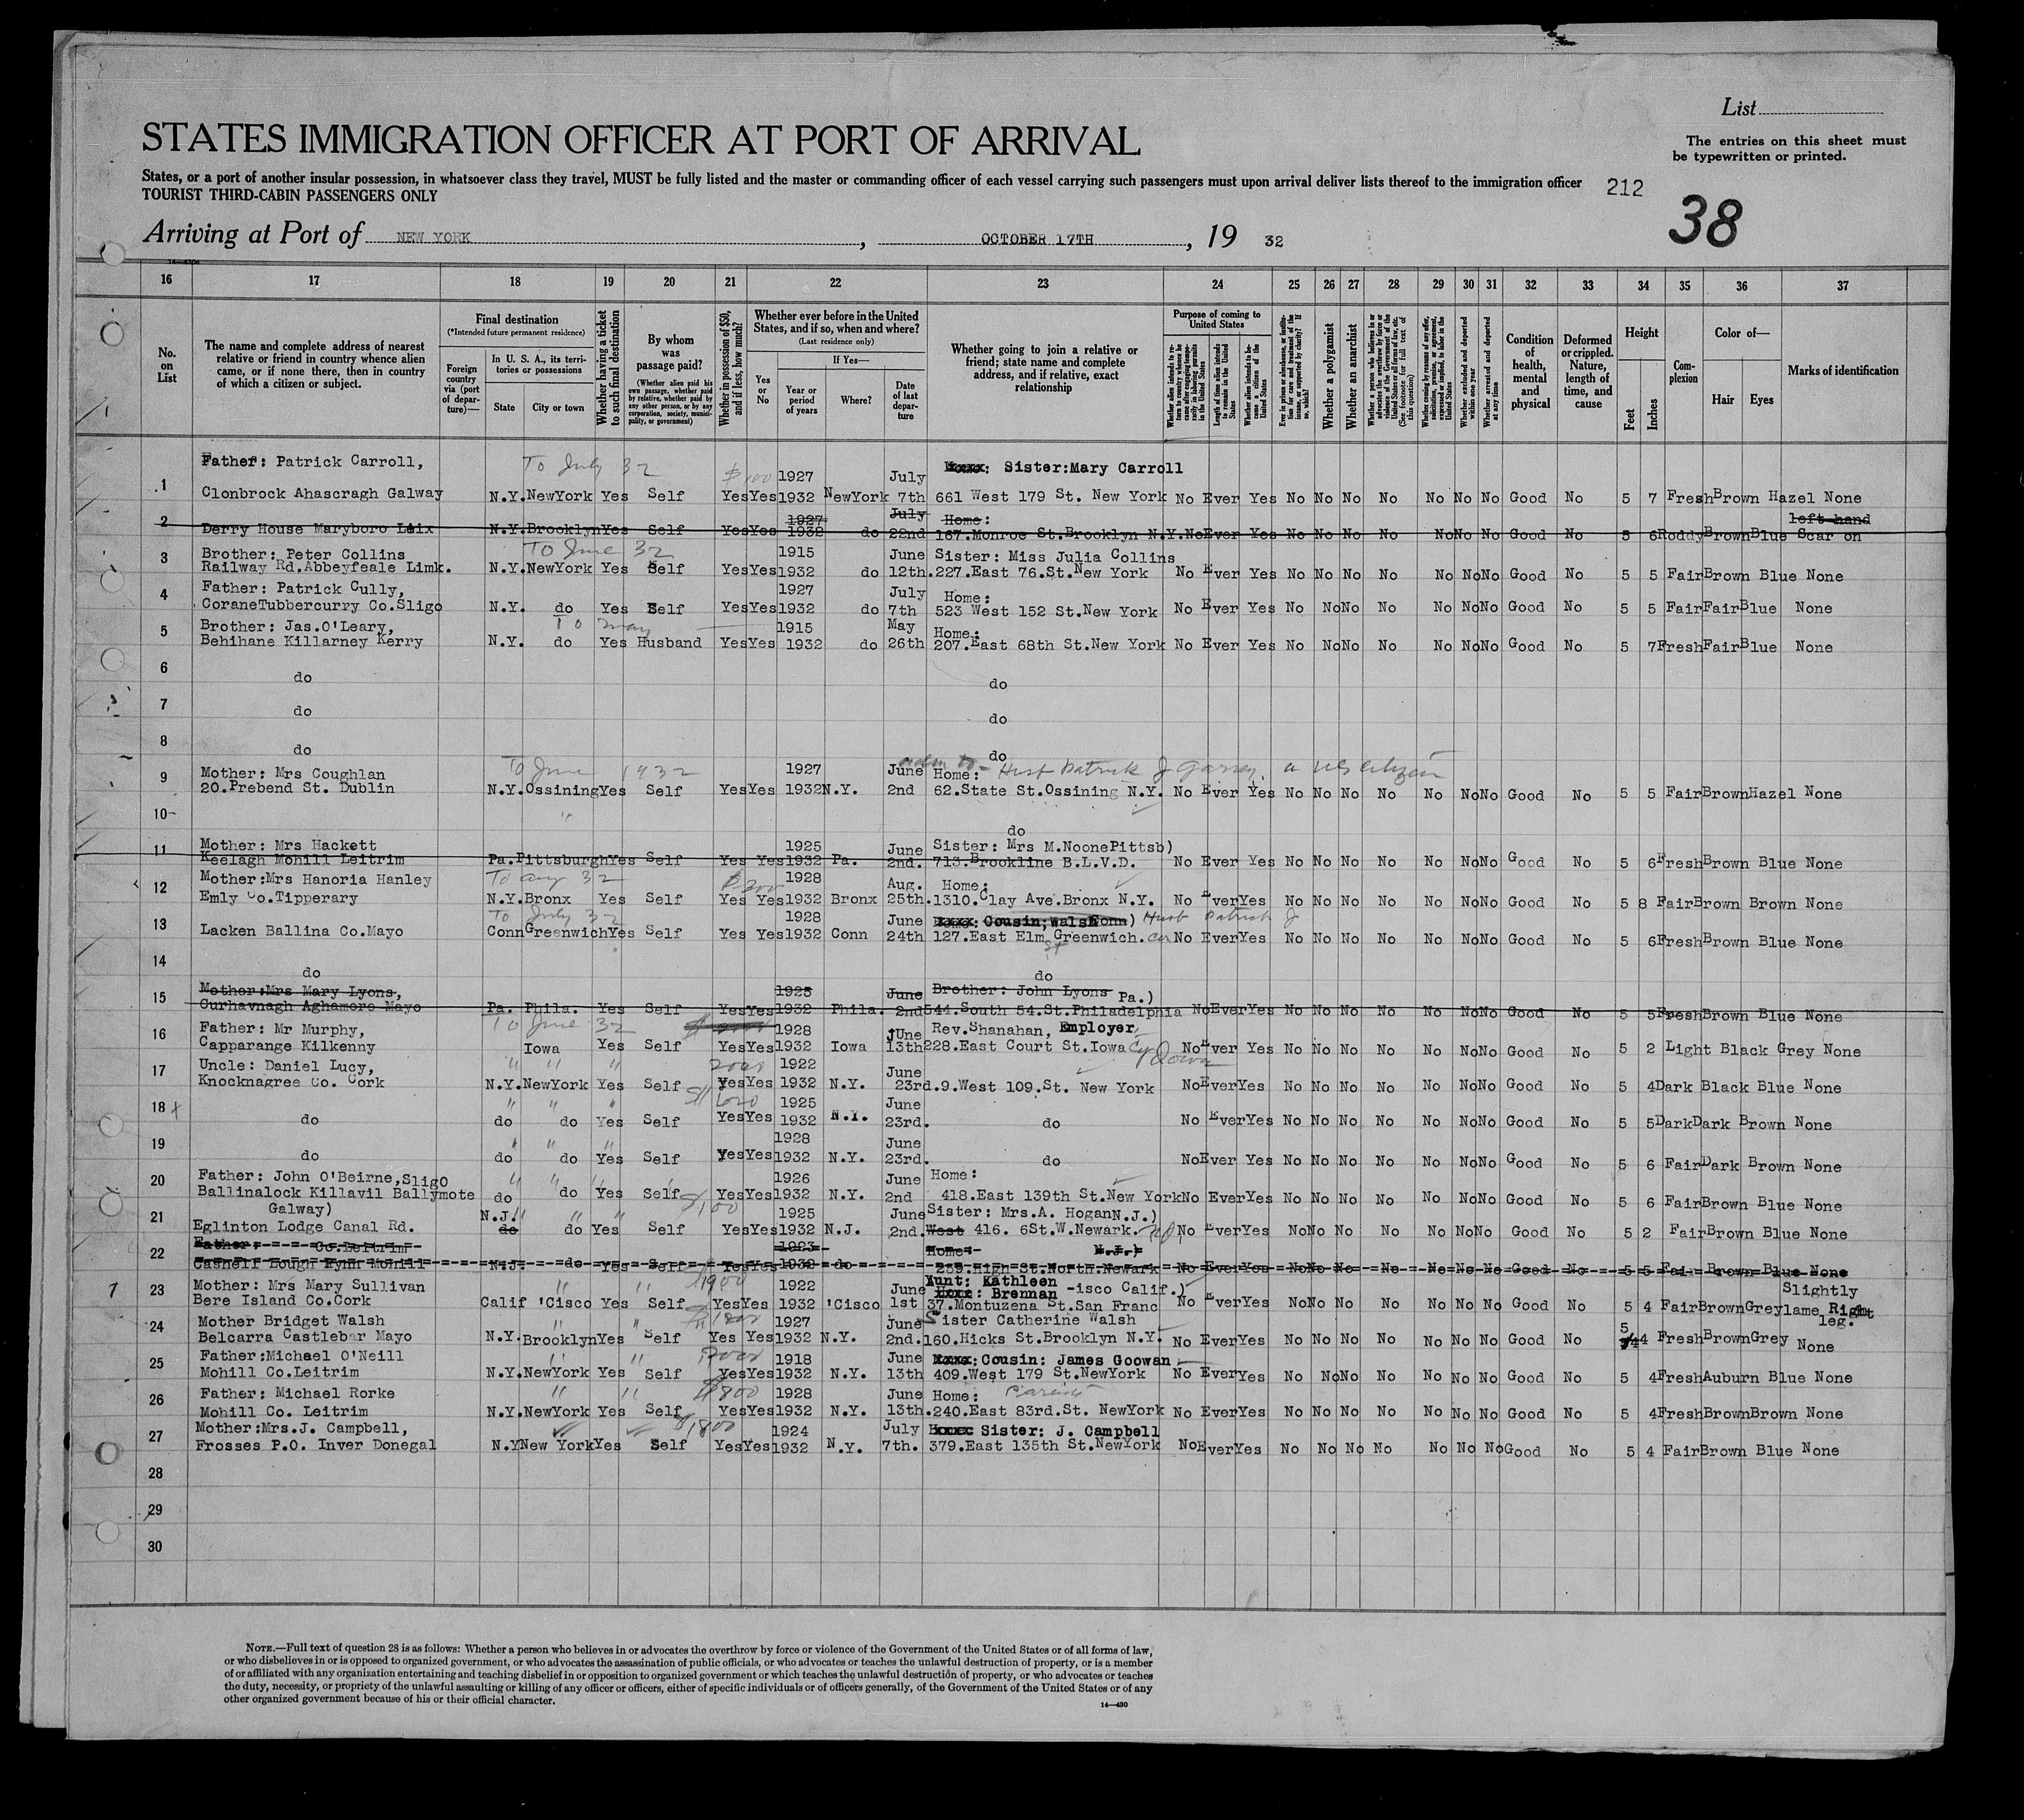 List
STATES IMMIGRATION OFFICER AT PORT OF ARRIVAL
The entries on this sheet must
be typewritten or printed.
States, or a port of another insular possession, in whatsoever class they travel, MUST be fully listed and the master or commanding officer of each vessel carrying such passengers must upon arrival deliver lists thereof to the immigration officer
212
TOURIST THIRD-CABIN PASSENGERS ONLY
38
Arriving at Port of NEW YORK, OCTOBER 17TH, 19 32
16 17 18 19 20 21 22 23 24 25 26 27 28 29 30 31 32 33 34 35 36 37
No. on List
The name and complete address of nearest relative or friend in country whence alien came, or if none there, then in country of which a citizen or subject.
Final destination
(*Intended future permanent residence)
Foreign country via (port of departure)—
In U. S. A., its territories or possessions
State
City or town
Whether having a ticket to such final destination
By whom was passage paid?
(Whether alien paid his own passage, whether paid by relative, whether paid by any other person, or by any corporation, society, municipality, or government)
Whether in possession of $50, and if less, how much?
Whether ever before in the United States, and if so, when and where?
(Last residence only)
Yes or No
If Yes—
Year or period of years
Where?
Date of last departure
Whether going to join a relative or friend; state name and complete address, and if relative, exact relationship
Purpose of coming to United States
Whether alien intends to return to country whence he came after engaging temporarily in laboring pursuits in the United States
Length of time alien intends to remain in the United States
Whether alien intends to become a citizen of the United States
Ever in prison or almshouse, or institution for care and treatment of the insane, or supported by charity? If so, which?
Whether a polygamist
Whether an anarchist
Whether a person who believes in or advocates the overthrow by force or violence of the Government of the United States or all forms of law, etc. (See footnote for full text of this question)
Whether coming by reasons of any offer, solicitation, promise, or agreement, expressed or implied, to labor in the United States
Whether excluded and deported within one year
Whether arrested and deported at any time
Condition of health, mental and physical
Deformed or crippled. Nature, length of time, and cause
Height
Feet
Inches
Complexion
Color of—
Hair
Eyes
Marks of identification
Father: Patrick Carroll, To July 32 $100 1927 July Sister:Mary Carroll
1 Clonbrock Ahascragh Galway N.Y. NewYork Yes Self Yes Yes 1932 NewYork 7th 661 West 179 St. New York No Ever Yes No No No No No No No Good No 5 7 Fresh Brown Hazel None
1927 July Home: left hand
2 Derry House Maryboro Leix N.Y. Brooklyn Yes Self Yes Yes 1932 do 22nd 167.Monroe St.Brooklyn N.Y. No Ever Yes No No No No No No No Good No 5 6 Roddy Brown Blue Scar on
3 Brother: Peter Collins To June 32 1915 June Sister: Miss Julia Collins
Railway Rd.Abbeyfeale Limk. N.Y. NewYork Yes Self Yes Yes 1932 do 12th. 227.East 76.St.New York No Ever Yes No No No No No No No Good No 5 5 Fair Brown Blue None
4 Father: Patrick Cully, 1927 July Home:
CoraneTubbercurry Co.Sligo N.Y. do Yes Self Yes Yes 1932 do 7th 523 West 152 St.New York No Ever Yes No No No No No No No Good No 5 5 Fair Fair Blue None
5 Brother: Jas.O'Leary, To may 1915 May Home:
Behihane Killarney Kerry N.Y. do Yes Husband Yes Yes 1932 do 26th 207.East 68th St.New York No Ever Yes No No No No No No No Good No 5 7 Fresh Fair Blue None
6 do do
7 do do
8 do do
9 Mother: Mrs Coughlan To June 1932 1927 June Home: Husb Patrick J a US citizen
20.Prebend St. Dublin N.Y. Ossining Yes Self Yes Yes 1932 N.Y. 2nd 62.State St.Ossining N.Y. No Ever Yes No No No No No No No Good No 5 5 Fair Brown Hazel None
10 " do
11 Mother: Mrs Hackett 1925 June Sister: Mrs M.NoonePittsb)
Keelagh Mohill Leitrim Pa. Pittsburgh Yes Self Yes Yes 1932 Pa. 2nd. 713.Brookline B.L.V.D. No Ever Yes No No No No No No No Good No 5 6 Fresh Brown Blue None
12 Mother:Mrs Hanoria Hanley To Aug 32 $300 1928 Aug. Home:
Emly Co.Tipperary N.Y. Bronx Yes Self Yes Yes 1932 Bronx 25th. 1310.Clay Ave.Bronx N.Y. No Ever Yes No No No No No No No Good No 5 8 Fair Brown Brown None
13 To July 32 1928 June Cousin;Walsh Conn) Husb Patrick J
Lacken Ballina Co.Mayo Conn Greenwich Yes Self Yes Yes 1932 Conn 24th 127.East Elm St Greenwich. Con No Ever Yes No No No No No No No Good No 5 6 Fresh Brown Blue None
14 do do
15 Mother:Mrs Mary Lyons, 1925 June Brother: John Lyons Pa.)
Curhavnagh Aghamore Mayo Pa. Phila. Yes Self Yes Yes 1932 Phila. 2nd 544.South 54.St.Philadelphia No Ever Yes No No No No No No No Good No 5 5 Fresh Brown Blue None
16 Father: Mr Murphy, To June 32 1928 June Rev.Shanahan, Employer
Capparange Kilkenny Iowa Yes Self Yes Yes 1932 Iowa 13th 228.East Court St.Iowa Cy Iowa No Ever Yes No No No No No No No Good No 5 2 Light Black Grey None
17 Uncle: Daniel Lucy, " " " 1922 June
Knocknagree Co. Cork N.Y. NewYork Yes Self Yes Yes 1932 N.Y. 23rd. 9.West 109.St. New York No Ever Yes No No No No No No No Good No 5 4 Dark Black Blue None
18 x " " " 1925 June
do do do Yes Self Yes Yes 1932 N.Y. 23rd. do No Ever Yes No No No No No No No Good No 5 5 Dark Dark Brown None
19 " " " 1928 June
do do do Yes Self Yes Yes 1932 N.Y. 23rd. do No Ever Yes No No No No No No No Good No 5 6 Fair Dark Brown None
20 Father: John O'Beirne,Sligo " " " 1926 June Home:
Ballinalock Killavil Ballymote do do Yes Self Yes Yes 1932 N.Y. 2nd 418.East 139th St.New York No Ever Yes No No No No No No No Good No 5 6 Fair Brown Blue None
21 Galway) N.J. " " " $100 1925 June Sister: Mrs.A. HoganN.J.)
Eglinton Lodge Canal Rd. do do Yes Self Yes Yes 1932 N.J. 2nd. West 416. 6St.W.Newark. NJ, No Ever Yes No No No No No No No Good No 5 2 Fair Brown Blue None
22 Father: Co.Leitrim 1923 Home: N.J.)
Cashelf Lough Rynn Mohill N.J. do Yes Self Yes Yes 1932 do 239.High St.North.Newark No Ever Yes No No No No No No No Good No 5 5 Fair Brown Blue None
23 Mother: Mrs Mary Sullivan " " 1922 June Aunt: Kathleen Brennan -isco Calif.) Slightly
Bere Island Co.Cork Calif 'Cisco Yes Self Yes Yes 1932 'Cisco 1st 37.Montuzena St.San Franc No Ever Yes No No No No No No No Good No 5 4 Fair Brown Grey lame Right leg.
24 Mother Bridget Walsh " " 1927 June Sister Catherine Walsh
Belcarra Castlebar Mayo N.Y. Brooklyn Yes Self Yes Yes 1932 N.Y. 2nd. 160.Hicks St.Brooklyn N.Y. No Ever Yes No No No No No No No Good No 5 4 Fresh Brown Grey None
25 Father:Michael O'Neill " " 1918 June Cousin: James Goowan
Mohill Co.Leitrim N.Y. NewYork Yes Self Yes Yes 1932 N.Y. 13th 409.West 179 St.NewYork No Ever Yes No No No No No No No Good No 5 4 Fresh Auburn Blue None
26 Father: Michael Rorke " " $800 1928 June Home: Parents
Mohill Co. Leitrim N.Y. NewYork Yes Self Yes Yes 1932 N.Y. 13th. 240.East 83rd.St. NewYork No Ever Yes No No No No No No No Good No 5 4 Fresh Brown Brown None
27 Mother:Mrs.J. Campbell, $1,800 1924 July Sister: J. Campbell
Frosses P.O. Inver Donegal N.Y New York Yes Self Yes Yes 1932 N.Y. 7th. 379.East 135th St.NewYork No Ever Yes No No No No No No No Good No 5 4 Fair Brown Blue None
28
29
30
NOTE.—Full text of question 28 is as follows: Whether a person who believes in or advocates the overthrow by force or violence of the Government of the United States or of all forms of law,
or who disbelieves in or is opposed to organized government, or who advocates the assassination of public officials, or who advocates or teaches the unlawful destruction of property, or is a member
of or affiliated with any organization entertaining and teaching disbelief in or opposition to organized government or which teaches the unlawful destruction of property, or who advocates or teaches
the duty, necessity, or propriety of the unlawful assaulting or killing of any officer or officers, either of specific individuals or of officers generally, of the Government of the United States or of any
other organized government because of his or their official character.
14—430